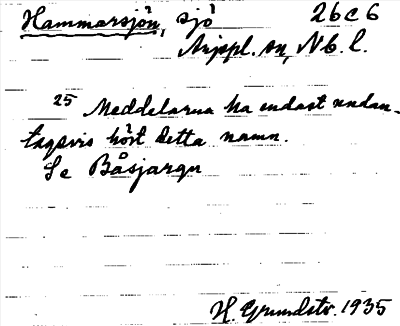 Hammarsjön, sjö 26 C 6
Arjepl. sn, Nb. l.
25 Meddelarna ha endast undan-
tagsvis hört detta namn.
Se Båsjaure
H. Grundstr. 1935